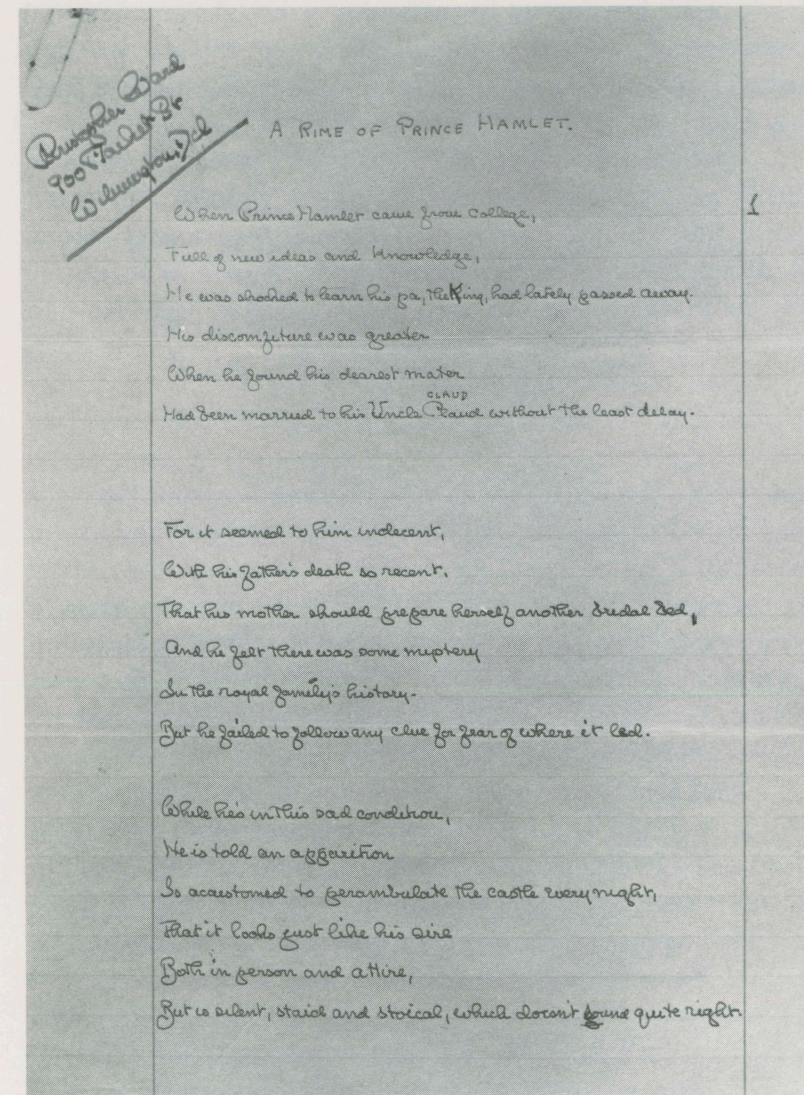 Christopher Ward
900 Market St
Wilmington, Del
A RIME OF PRINCE HAMLET.
1
When Prince Hamlet came from college,
Full of new ideas and knowledge,
He was shocked to learn his pa, the King, had lately passed away.
His discomfiture was greater
When he found his dearest mater
CLAUD
Had been married to his Uncle Claud without the least delay.
For it seemed to him indecent,
With his father's death so recent,
That his mother should prepare herself another bridal bed,
And he felt there was some mystery
In the royal family's history.
But he failed to follow any clue for fear of where it led.
While he's in this sad condition,
He is told an apparition
Is accustomed to perambulate the castle every night,
That it looks just like his sire
Both in person and attire,
But is silent, staid and stoical, which doesn't sound quite right.